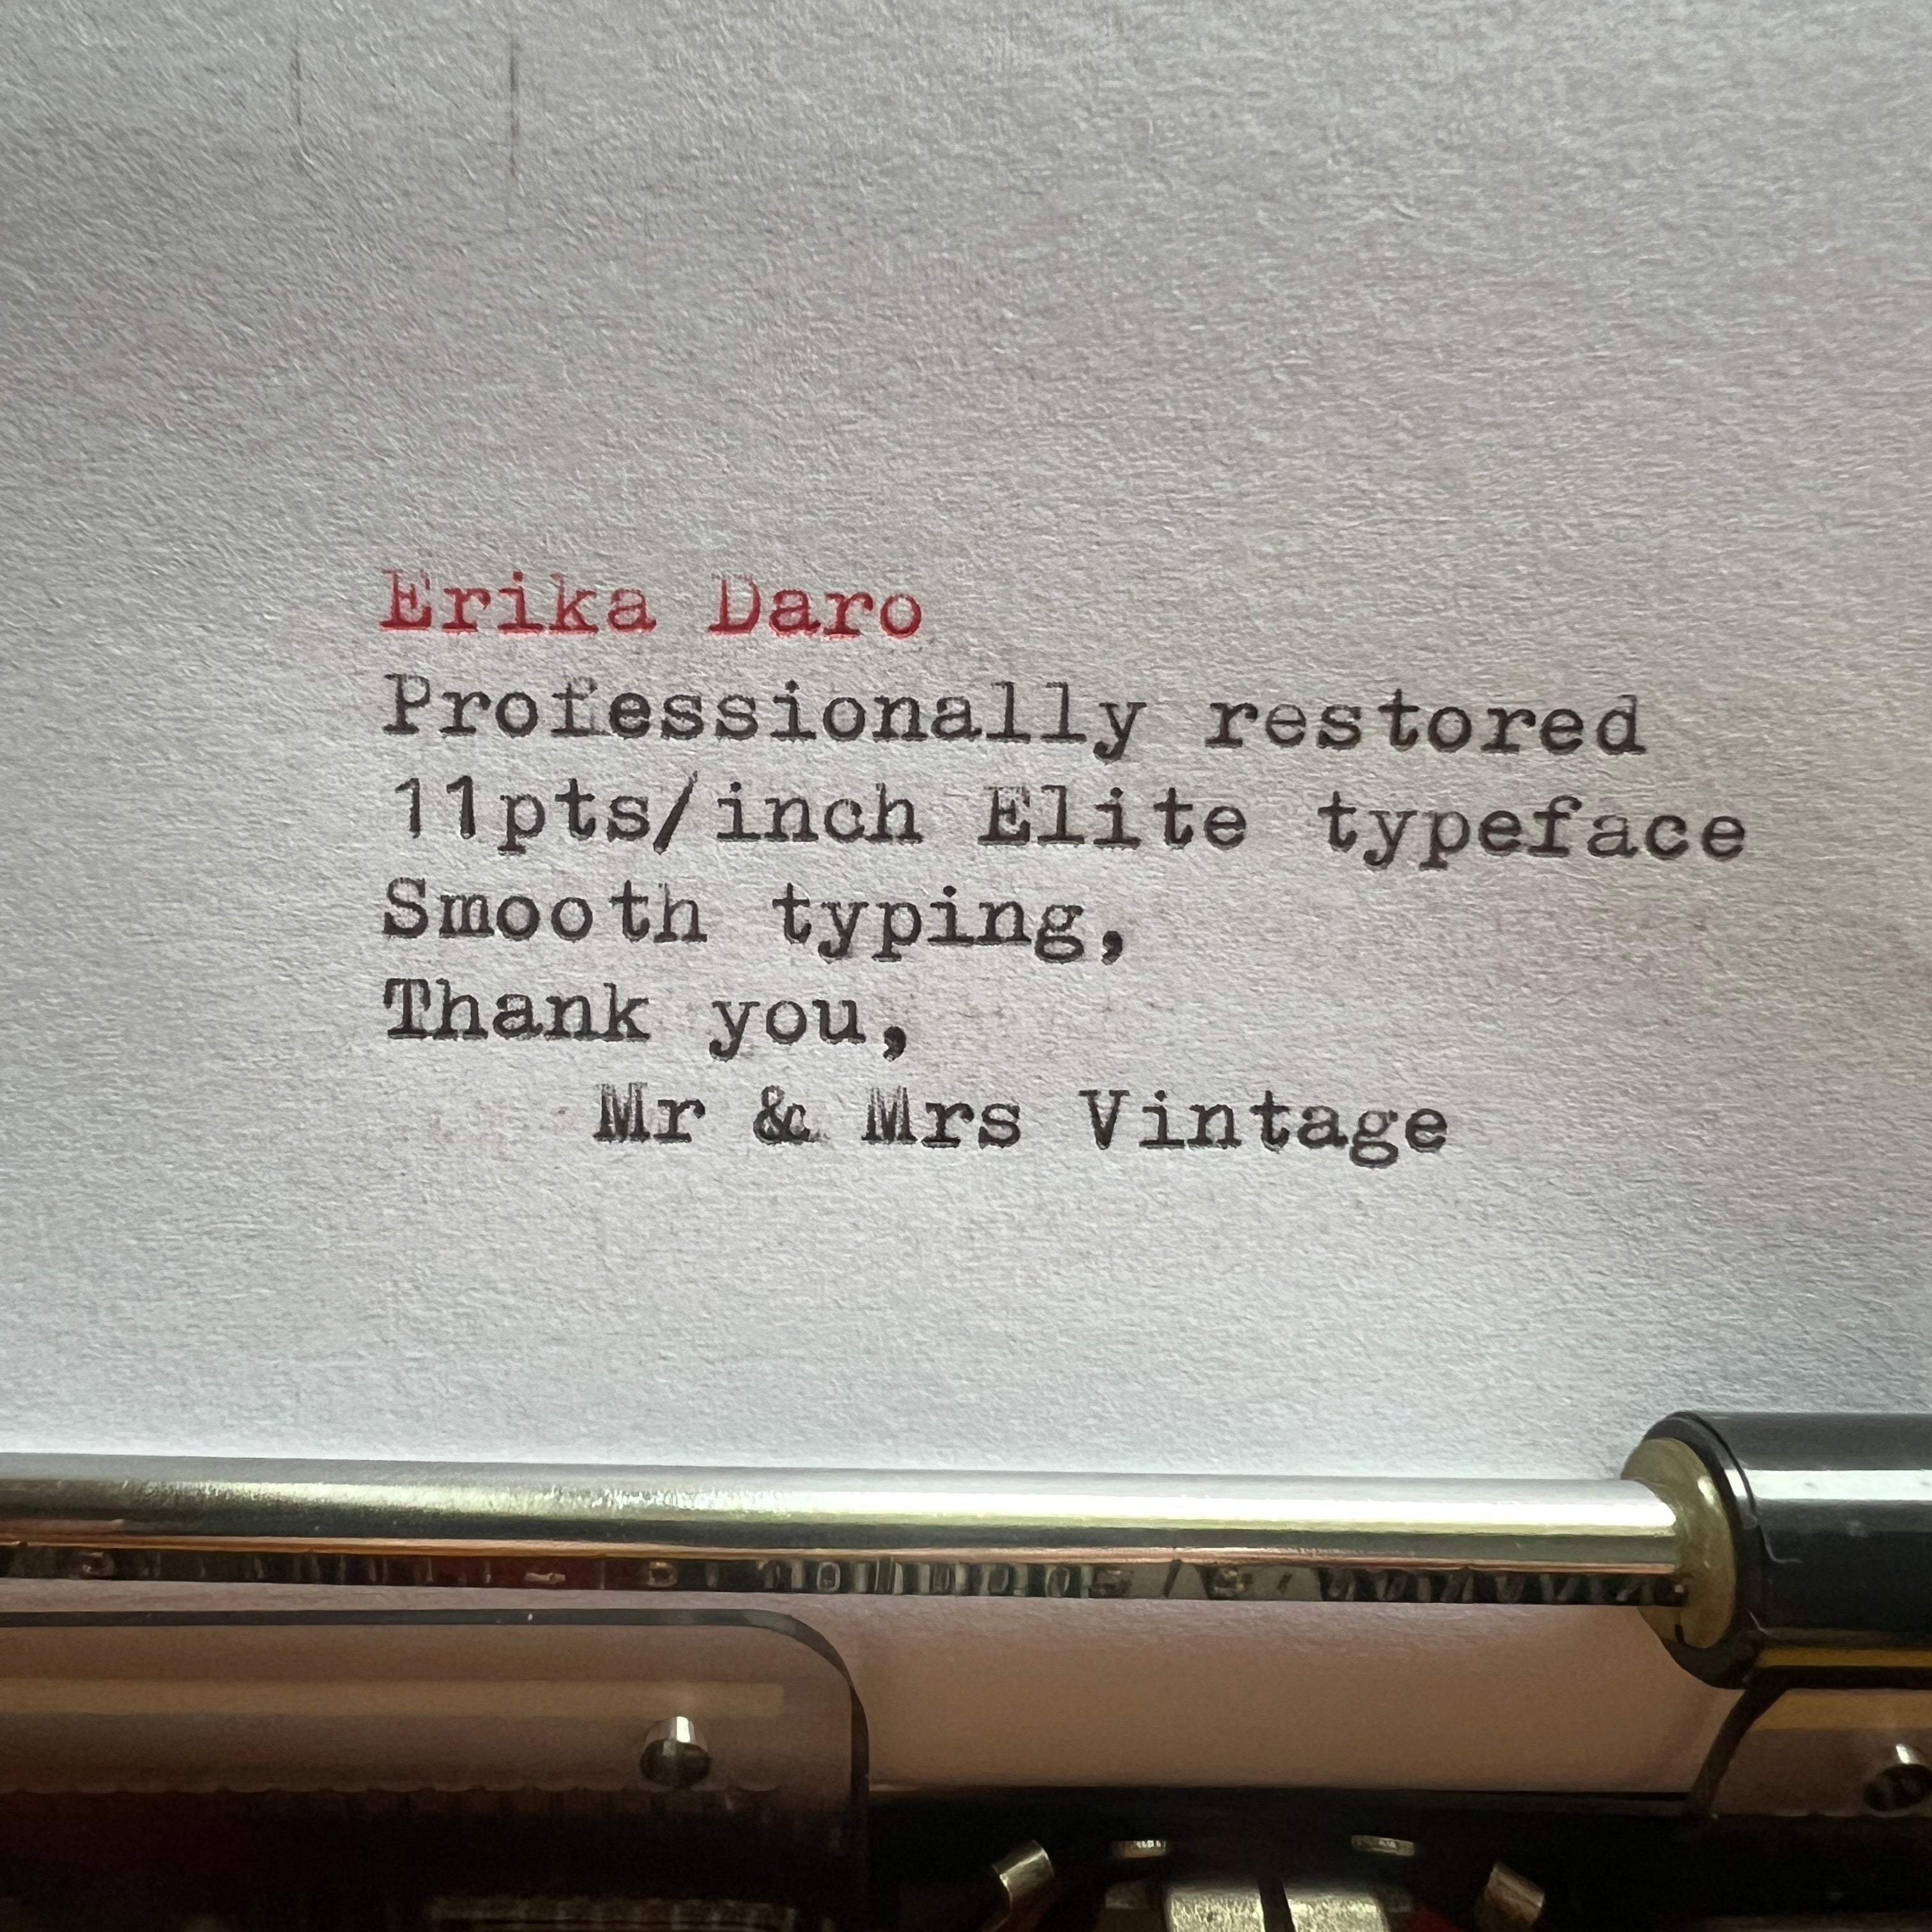 Erika Daro
Professionally restored
11pts/inch Elite typeface
Smooth typing,
Thank you,
Mr & Mrs Vintage